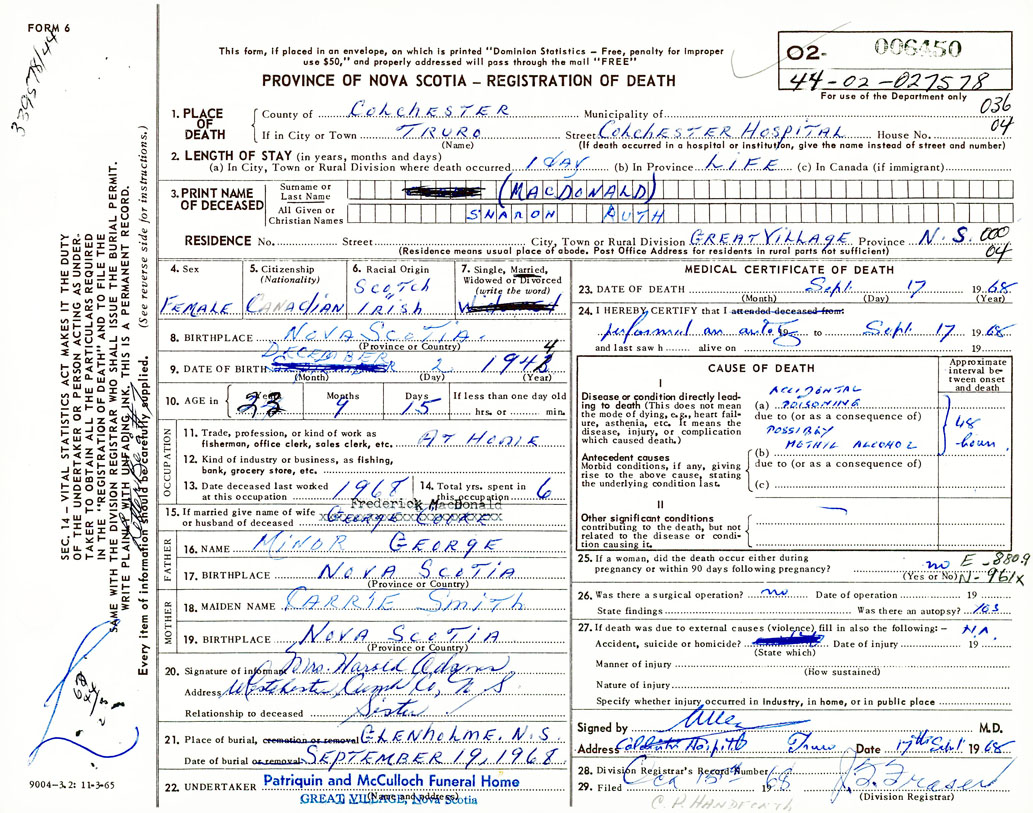 FORM 6
339578/44
This form, if placed in an envelope, on which is printed "Dominion Statistics – Free, penalty for improper
use $50," and properly addressed will pass through the mail "FREE"
PROVINCE OF NOVA SCOTIA – REGISTRATION OF DEATH
02- 006450
44-02-027578
For use of the Department only
036
04
1. PLACE OF DEATH
County of COLCHESTER Municipality of
If in City or Town TRURO Street COLCHESTER HOSPITAL House No.
(Name) (If death occurred in a hospital or institution, give the name instead of street and number)
2. LENGTH OF STAY (in years, months and days)
(a) In City, Town or Rural Division where death occurred 1 day (b) In Province LIFE (c) In Canada (if immigrant)
3. PRINT NAME OF DECEASED
Surname or Last Name (MACDONALD)
All Given or Christian Names SHARON RUTH
RESIDENCE No. Street City, Town or Rural Division GREAT VILLAGE Province N.S. 000
04
(Residence means usual place of abode. Post Office Address for residents in rural parts not sufficient)
4. Sex
FEMALE
5. Citizenship
(Nationality)
CANADIAN
6. Racial Origin
SCOTCH
IRISH
7. Single, Married,
Widowed or Divorced
(write the word)
8. BIRTHPLACE NOVA SCOTIA.
(Province or Country)
DECEMBER
9. DATE OF BIRTH 2 1944
(Month) (Day) (Year)
10. AGE in Years 23 Months 9 Days 15 If less than one day old
hrs. or min.
OCCUPATION
11. Trade, profession, or kind of work as
fisherman, office clerk, sales clerk, etc. AT HOME
12. Kind of industry or business, as fishing,
bank, grocery store, etc.
13. Date deceased last worked
at this occupation 1968
14. Total yrs. spent in
this occupation 6
Frederick MacDonald
15. If married give name of wife
or husband of deceased
FATHER
16. NAME MINOR GEORGE
17. BIRTHPLACE NOVA SCOTIA
(Province or Country)
MOTHER
18. MAIDEN NAME CARRIE Smith
19. BIRTHPLACE NOVA SCOTIA
(Province or Country)
20. Signature of informant Mrs. Harold Adams
Address Westchester, Cumb Co, N S
Relationship to deceased Sister
21. Place of burial, cremation or removal GLENHOLME, N.S.
Date of burial or removal SEPTEMBER 19, 1968
22. UNDERTAKER Patriquin and McCulloch Funeral Home
(Name and address)
GREAT VILLAGE, Nova Scotia
MEDICAL CERTIFICATE OF DEATH
23. DATE OF DEATH Sept. 17 1968
(Month) (Day) (Year)
24. I HEREBY CERTIFY that I attended deceased from:
performed an autopsy 19 to Sept. 17 1968
and last saw h alive on 19
CAUSE OF DEATH
Approximate interval between onset and death
I
Disease or condition directly leading to death (This does not mean the mode of dying, e.g., heart failure, asthenia, etc. It means the disease, injury, or complication which caused death.)
ACCIDENTAL
(a) POISONING
due to (or as a consequence of)
POSSIBLY
METHYL ALCOHOL
48 hours
(b)
due to (or as a consequence of)
Antecedent causes
Morbid conditions, if any, giving rise to the above cause, stating the underlying condition last.
(c)
II
Other significant conditions
contributing to the death, but not related to the disease or condition causing it.
25. If a woman, did the death occur either during
pregnancy or within 90 days following pregnancy? no
(Yes or No)
E-880.9
N-961X
26. Was there a surgical operation? no Date of operation 19
State findings Was there an autopsy? yes
27. If death was due to external causes (violence) fill in also the following:– N.A.
Accident, suicide or homicide? Date of injury 19
(State which)
Manner of injury
(How sustained)
Nature of injury
Specify whether injury occurred in Industry, in home, or in public place
Signed by M.D.
Address Colchester Hospital Truro Date 17th Sept 1968
28. Division Registrar's Record Number
29. Filed Oct 15th 1968
(Division Registrar)
J. G. Fraser
SEC. 14 – VITAL STATISTICS ACT MAKES IT THE DUTY
OF THE UNDERTAKER OR PERSON ACTING AS UNDER-
TAKER TO OBTAIN ALL THE PARTICULARS REQUIRED
IN THE "REGISTRATION OF DEATH" AND TO FILE THE
SAME WITH THE DIVISION REGISTRAR WHO SHALL ISSUE THE BURIAL PERMIT.
WRITE PLAINLY WITH UNFADING INK. THIS IS A PERMANENT RECORD.
Every item of information should be carefully supplied. (See reverse side for instructions.)
9004–3.2: 11-3-65